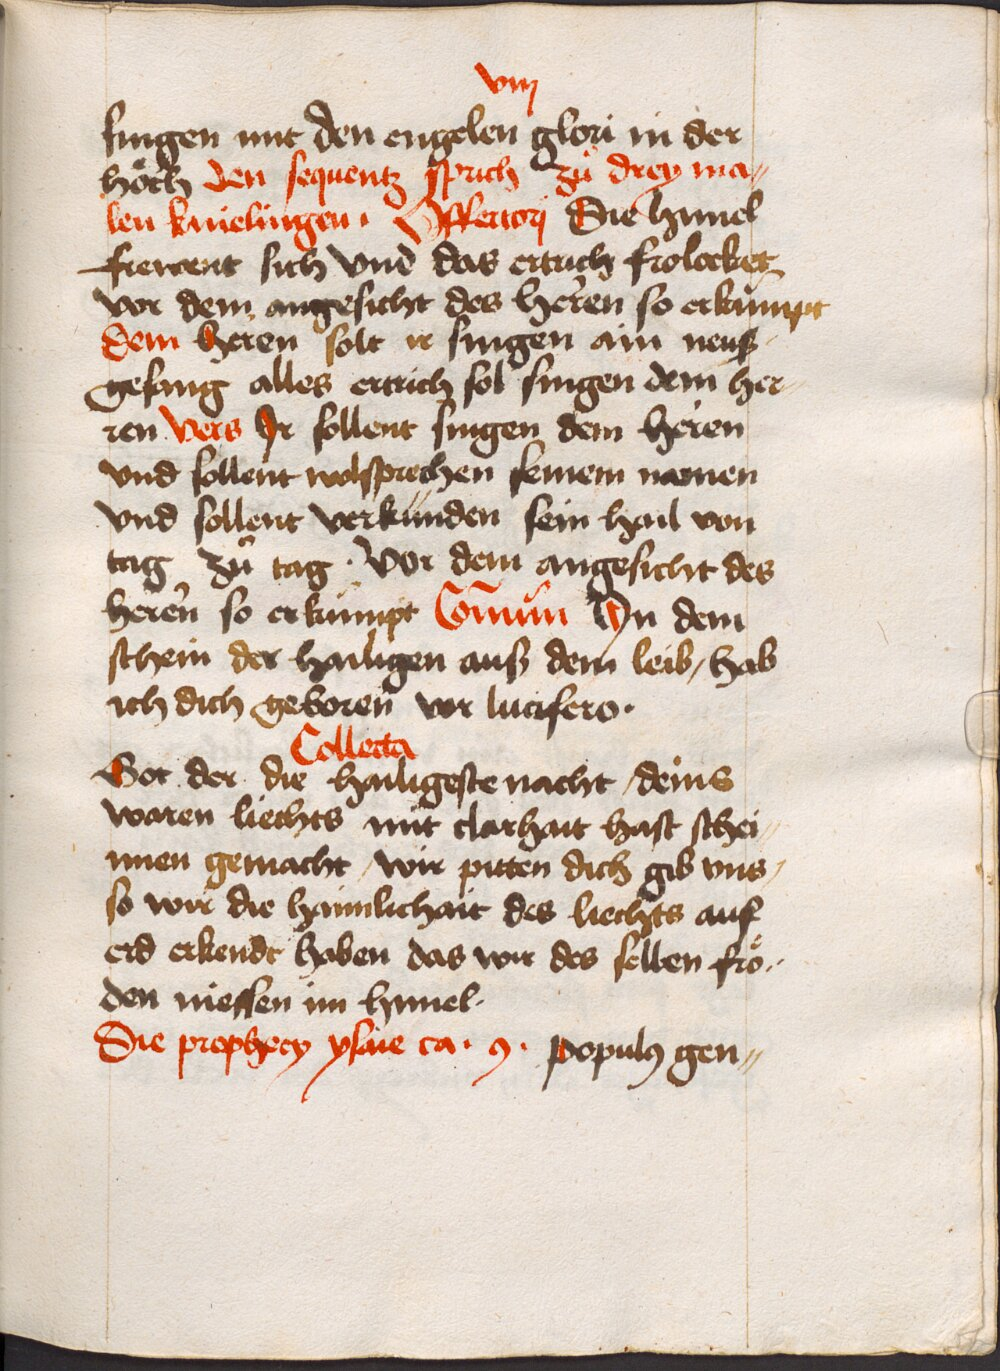 viij
singen mit den engelen glori in der
höch den sequentz sprich zů drey ma„
len knielingen. Offertorj Die himel
frewent sich vnd das ertrich frolocket
vor dem angesicht des heren so er kumpt
dem heren solt ir singen ain neuß
gesang alles ertrich sol singen dem her„
ren Vers Ir sollent singen dem heren
vnd sollent wolsprechen seinem namen
vnd sollent verkünden sein hail von
tag zů tag. Vor dem angesicht des
heren so er kumpt Comun In dem
schein der hailigen auß dem leib / hab
ich dich geboren vor lucifero.
Collecta
Got der die hailigeste nacht / deins
waren liechts mit clarhait hast schei„
nnen gemacht / wir pitten dich gib vns /
so wir die haimlichait des liechts auf
erd erkendt haben das wir des selben frö„
den niessen im himel.
Die prophecy ysaie ca. 9. populꝰ gen„